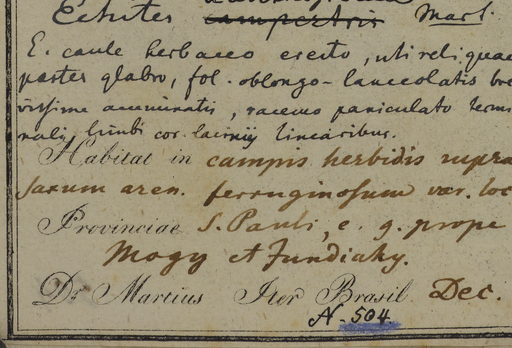 Echites campestris Mart.
E. caule herbaceo erecto, uti reliquae
partes glabro, fol. oblongo-lanceolatis bre
vissime acuminatis, racemo paniculato termi
nali, limbi cor. laciniis linearibus.
Habitat in campis herbidis supra
saxum aren. ferruginosum var. loc
Provinciae S. Pauli, e. g. prope
Mogy et Jundiahy.
Dr. Martius Iter Brasil. Dec.
N. 504